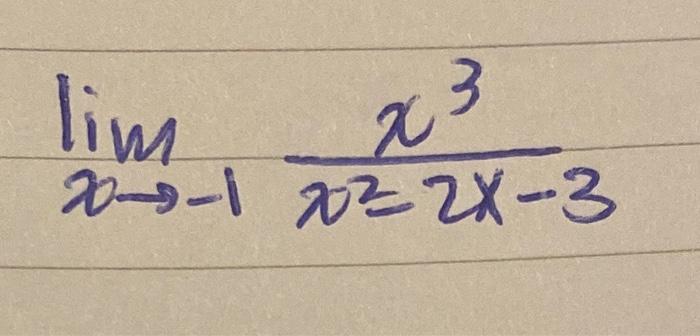 lim x→-1 x³/(x²-2x-3)